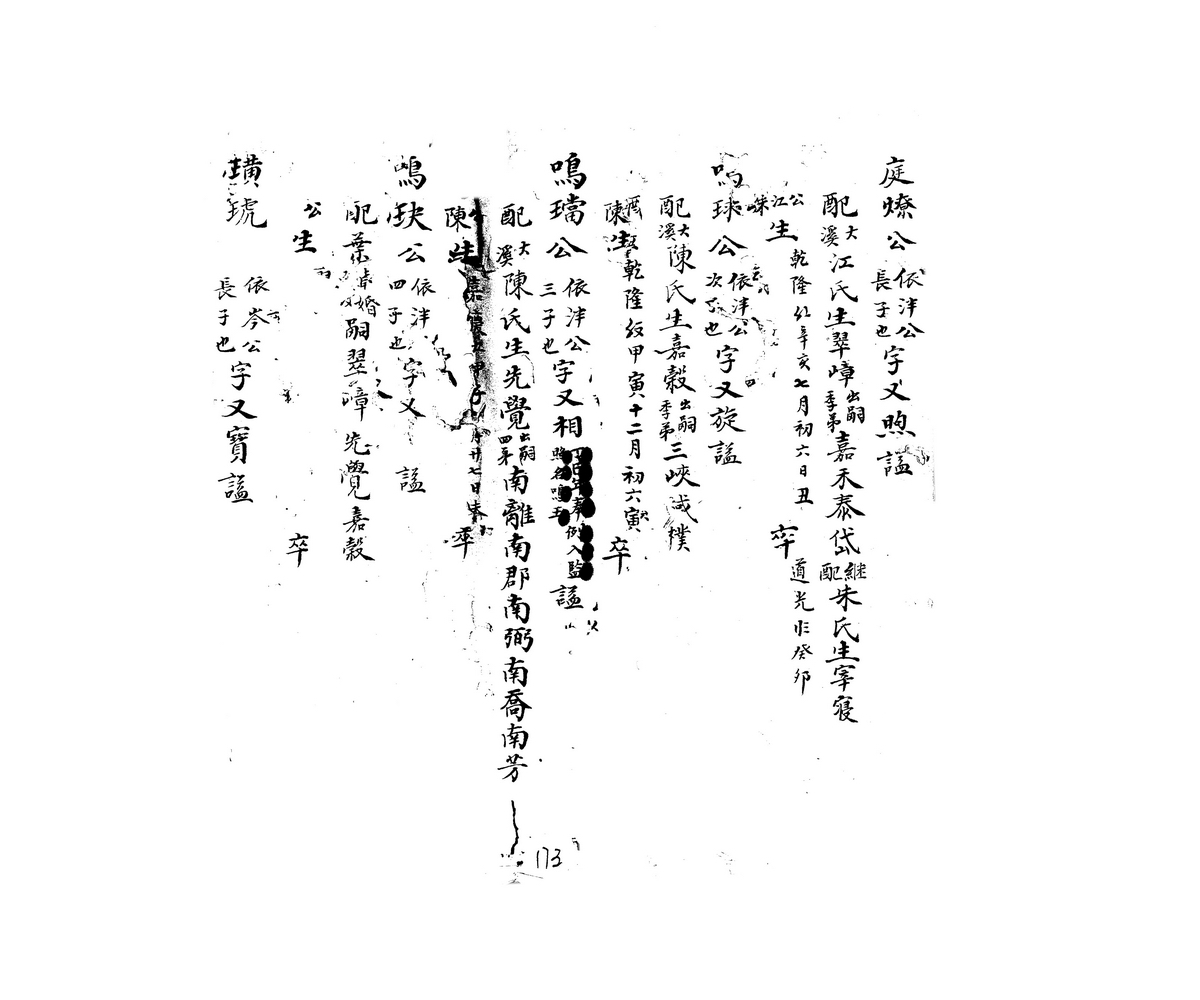 庭燎公依泮公長子也字又煦謚
配大溪江氏生翠嶂出嗣季弟嘉禾泰岱継配朱氏生宰寝
公江生乾隆辛亥七月初六日丑卒道光癸卯
鳴球公依泮公次子也字又旋謚
配大溪陳氏生嘉穀出嗣季弟三峽棫樸
陳生乾隆甲寅十二月初六寅卒
鳴璫公依泮公三子也字又相例入監謚
配大溪陳氏生先覺出嗣四弟南離南郡南弼南喬南芳
陳生甲子月廿七日卒
鳴玦公依泮公四子也字又謚
配葉嗣翠嶂先覺嘉穀
公生卒
璜琥依岑公長子也字又寶謚
173